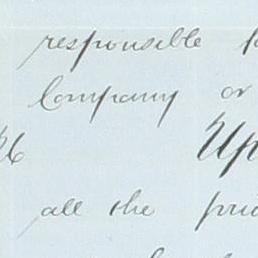 responsible
Company or
Up
all the